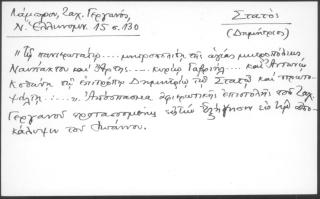 Λάμπρος, Ζαχ. Γεργανός,
Ν. Ἑλληνομν. 15 σ. 130
Στατός
(Δημήτριος)
μητροπολίτῃ τῆς ἁγίας μητροπόλεως
Ναυπάκτου καὶ Ἄρτης.... κυρίῳ Γαβριήλ.... καὶ Ἀντωνίῳ
τῷ ἐπιτρόπῳ Δημητρίῳ τῷ Στατῷ καὶ πρωτο-
Ἀπόσπασμα ἀφιερωτικῆς ἐπιστολῆς τοῦ Ζαχ.
Γεργανοῦ προτασσομένης εἰς τὴν ἐξήγησιν εἰς τὴν Ἀπο-
κάλυψιν τοῦ Ἰωάννου.